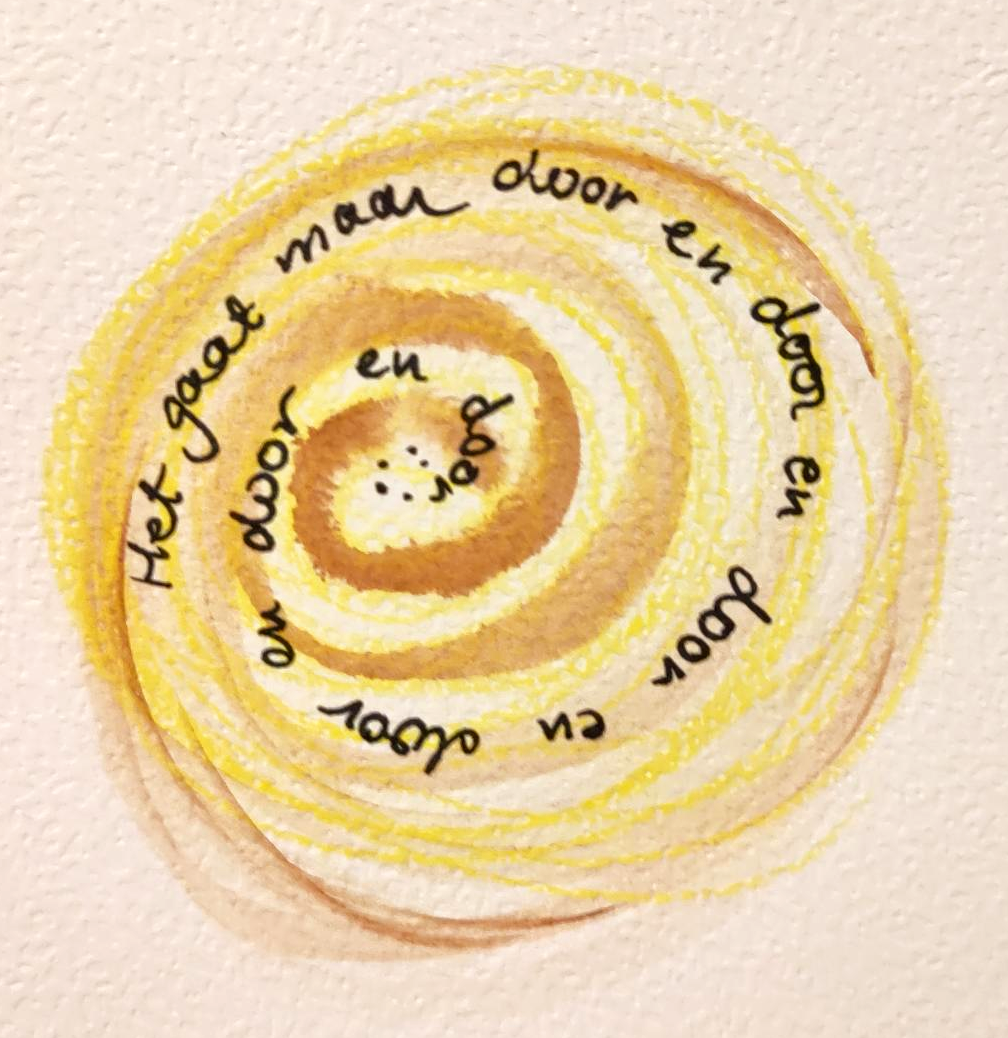 Het gaat maar door en door en door en door en door en door .....